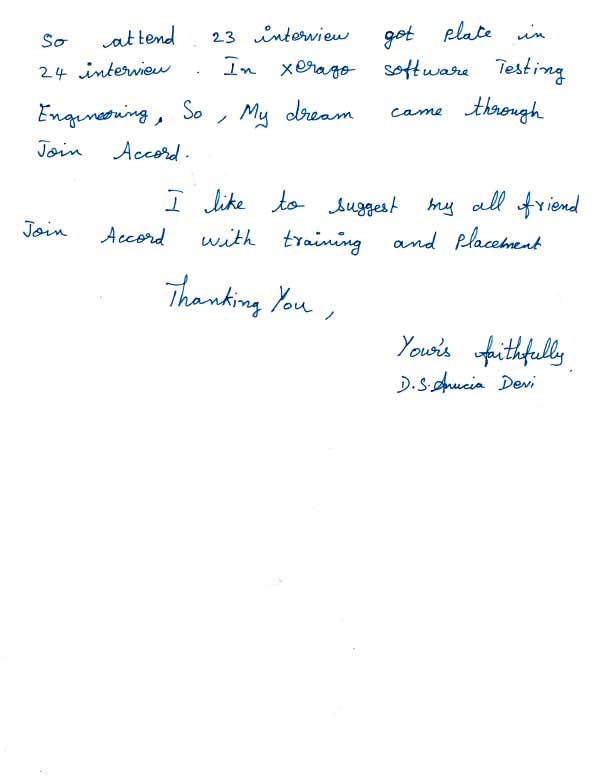 So attend 23 interview got place in
24 interview. In xerago software Testing
Engineering, So, My dream came through
Join Accord.
I like to suggest my all friend
Join Accord with training and Placement
Thanking You,
Your's faithfully
D.S. Anucia Devi